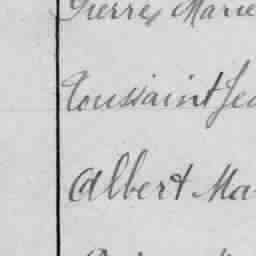 Pierre, Marie
Toussaint Je
Albert Ma